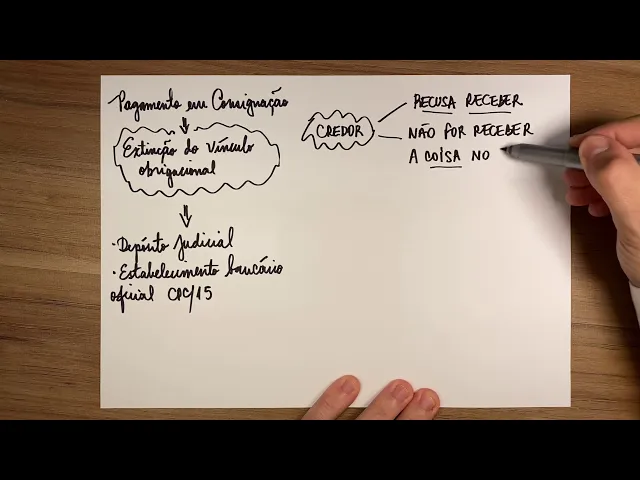 Pagamento em Consignação
Extinção do vínculo
obrigacional
· Depósito Judicial
· Estabelecimento bancário
oficial CPC/15
CREDOR
RECUSA RECEBER
NÃO FOR RECEBER
A COISA NO